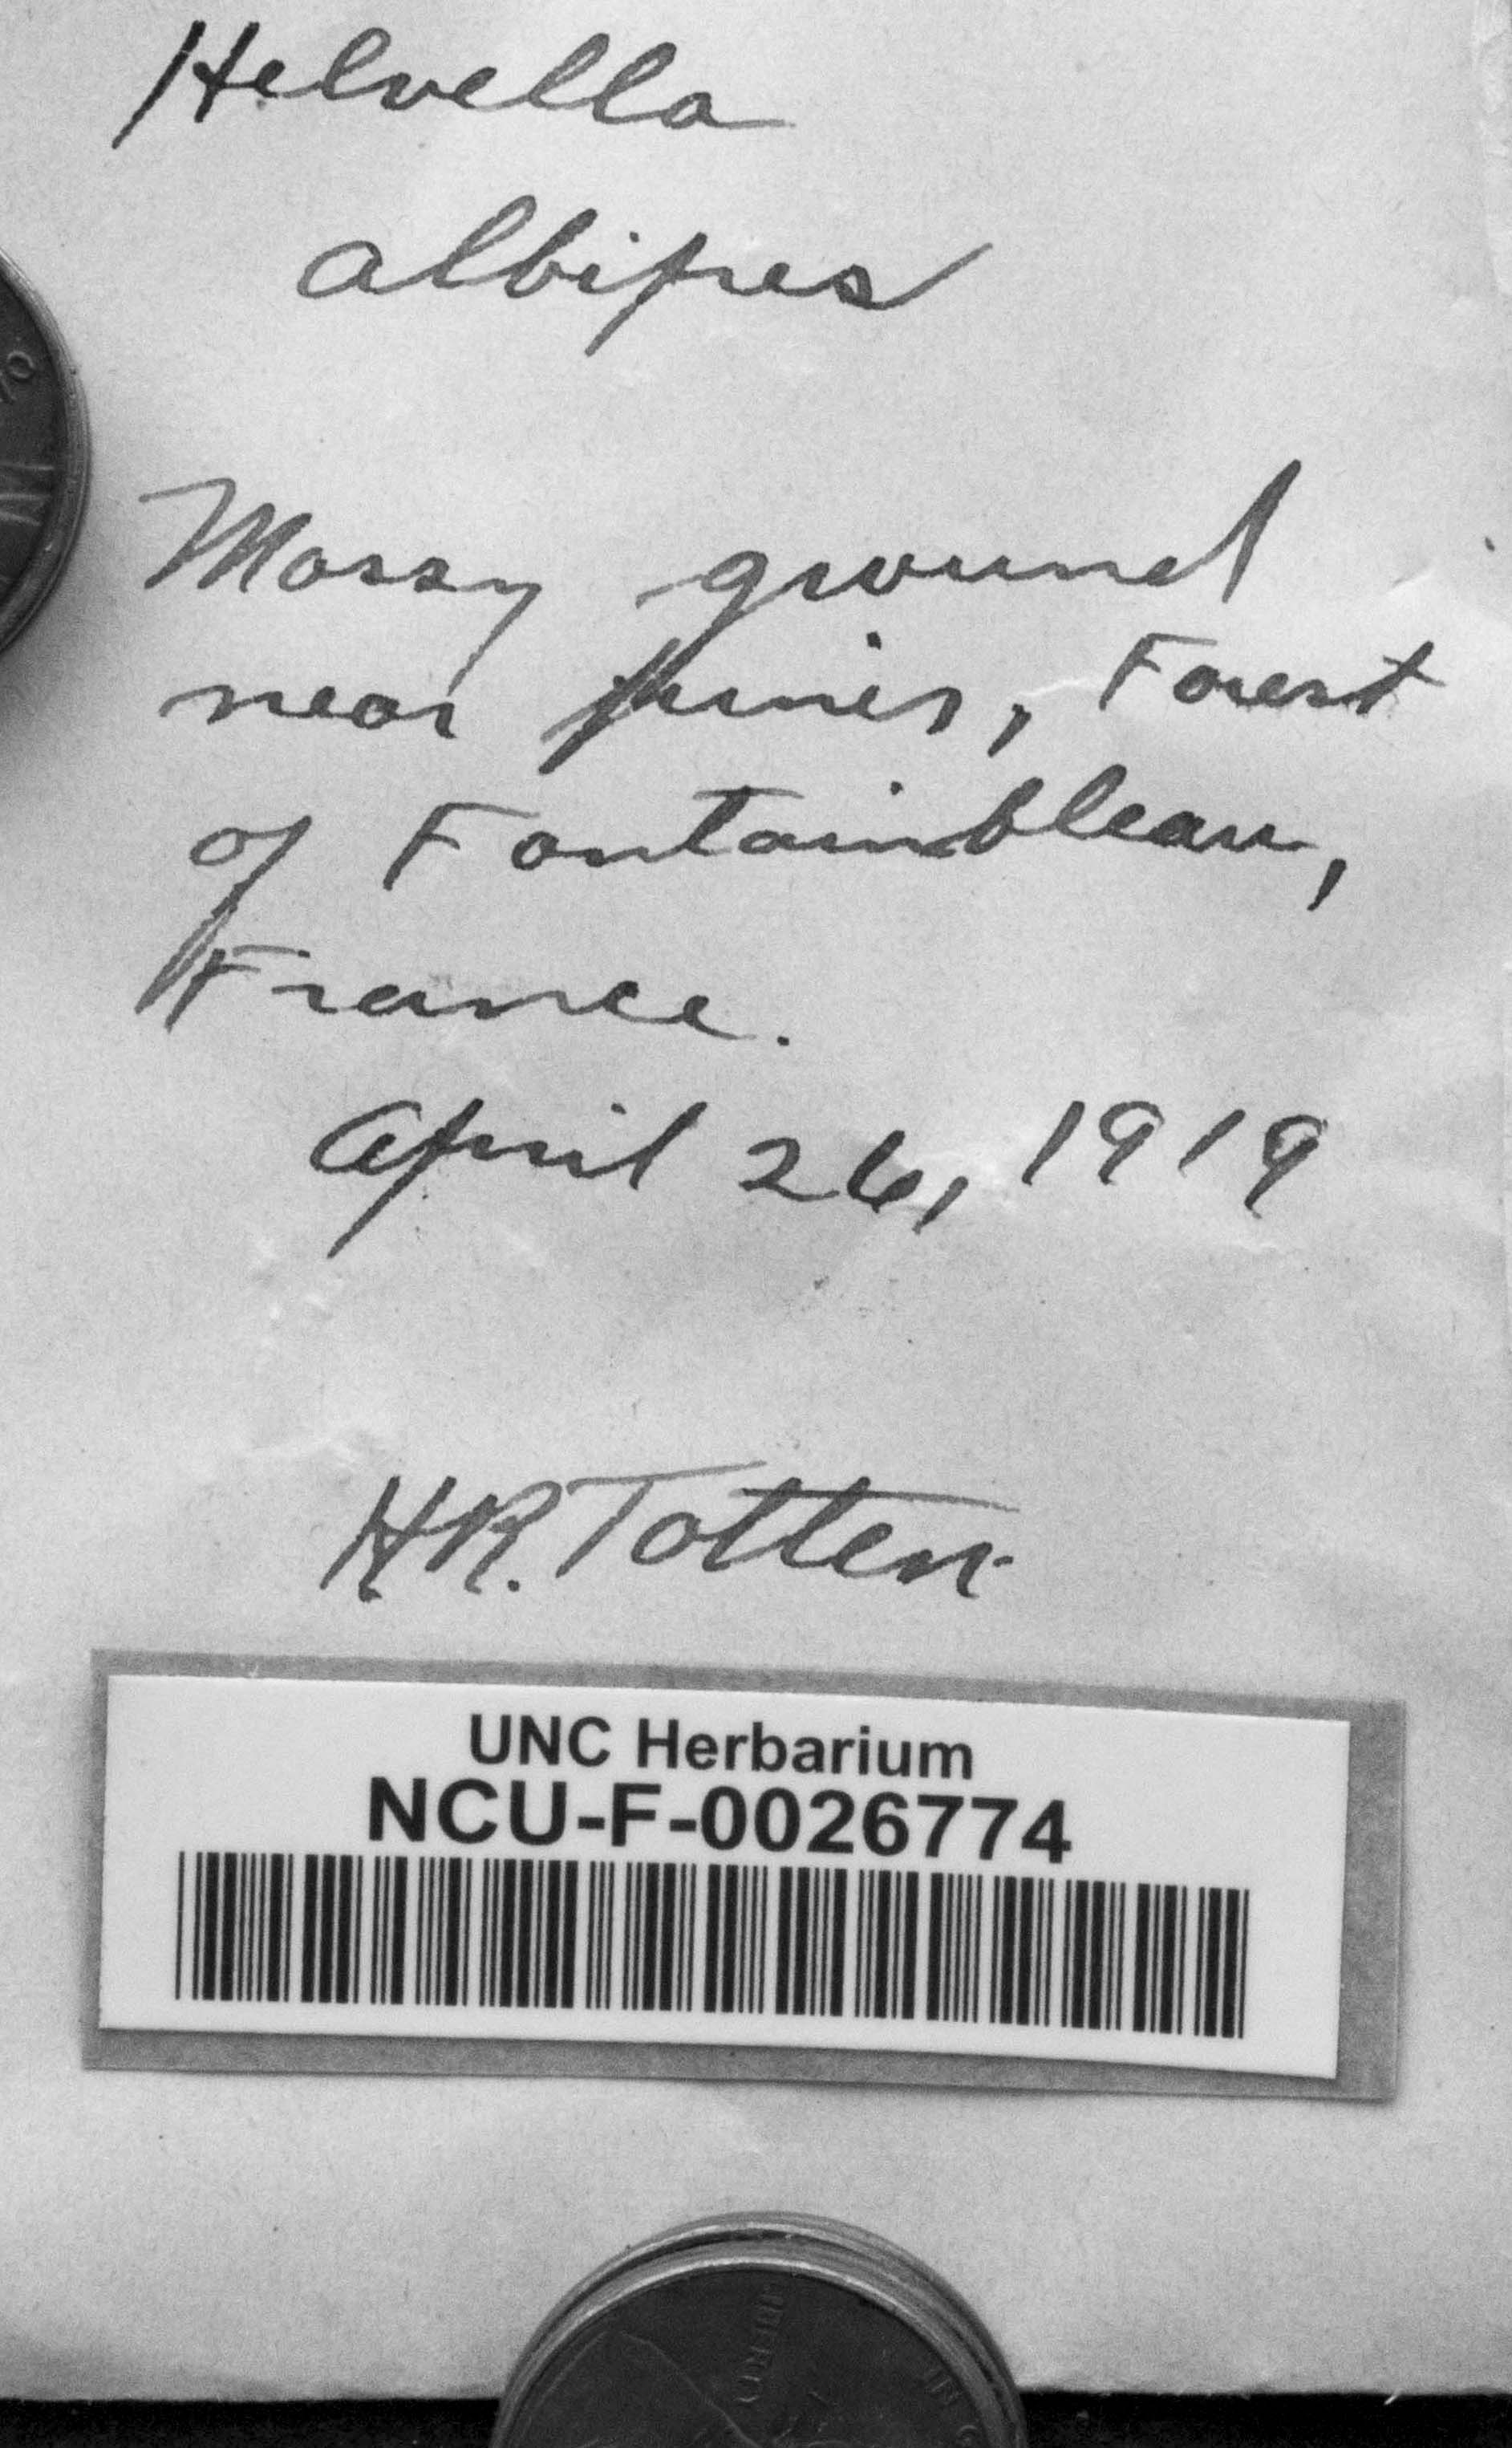 Helvella
albipes
Mossy ground
near pines, Forest
of Fontainbleau,
France.
April 26, 1919
H.R. Totten
UNC Herbarium
NCU-F-0026774